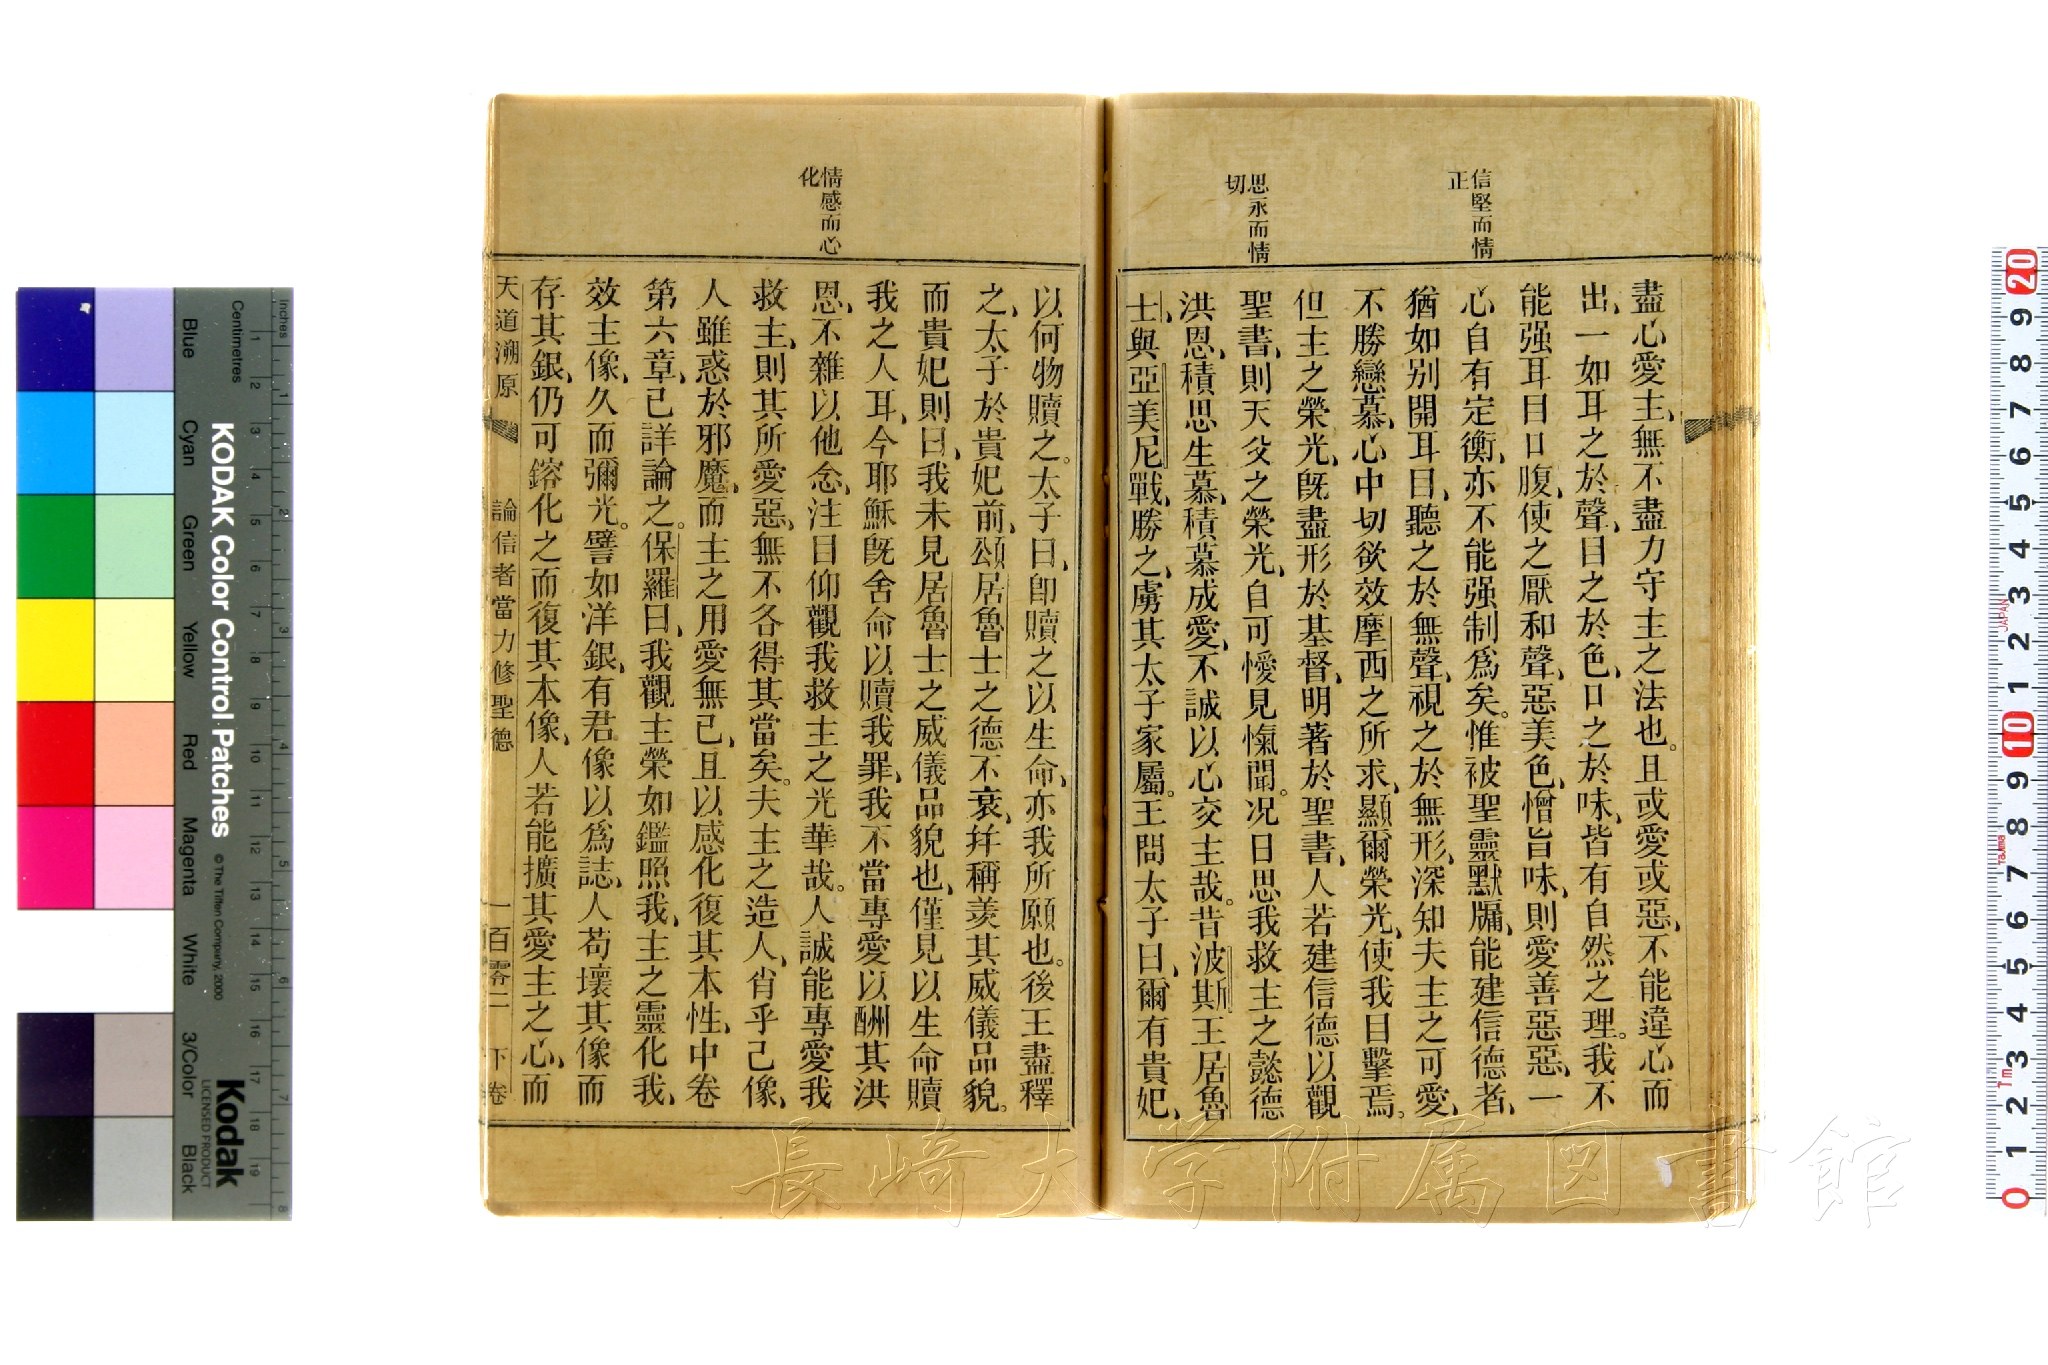 信堅而情
正
思永而情
切
盡心愛主、無不盡力守主之法也。且或愛或惡、不能違心而
出、一如耳之於聲、目之於色、口之於味、皆有自然之理。我不
能强耳目口腹、使之厭和聲、惡美色、憎旨味、則愛善惡惡、一
心自有定衡、亦不能强制爲矣。惟被聖靈默牖、能建信德者、
猶如别開耳目、聽之於無聲、視之於無形、深知夫主之可愛、
不勝戀慕、心中切欲效摩西之所求、顯爾榮光、使我目擊焉。
但主之榮光、旣盡形於基督、明著於聖書、人若建信德以觀
聖書、則天父之榮光、自可僾見愾聞。况日思我救主之懿德
洪恩、積思生慕、積慕成愛、不誠以心交主哉。昔波斯王居魯
士、與亞美尼戰、勝之、虜其太子家屬。王問太子曰、爾有貴妃、
情感而心
化
以何物贖之。太子曰、卽贖之以生命、亦我所願也。後王盡釋
之、太子於貴妃前、頌居魯士之德不衰、幷稱羨其威儀品貌。
而貴妃則曰、我未見居魯士之威儀品貌也、僅見以生命贖
我之人耳、今耶穌旣舍命以贖我罪、我不當專愛以酬其洪
恩、不雜以他念、注目仰觀我救主之光華哉。人誠能專愛我
救主、則其所愛惡、無不各得其當矣。夫主之造人、肖乎己像、
人雖惑於邪魔、而主之用愛無已、且以感化復其本性、中卷
第六章、已詳論之。保羅曰、我觀主榮如鑑照我、主之靈化我、
效主像、久而彌光。譬如洋銀、有君像以爲誌、人苟壞其像而
存其銀、仍可鎔化之而復其本像、人若能擴其愛主之心、而
天道溯原 論信者當力修聖德 一百零二 下卷
長崎大学附属図書館
KODAK Color Control Patches
© The Tiffen Company, 2000
Kodak
LICENSED PRODUCT
Inches
Centimetres
Blue Cyan Green Yellow Red Magenta White 3/Color Black
1 2 3 4 5 6 7 8
1 2 3 4 5 6 7 8 9 10 11 12 13 14 15 16 17 18 19
20 9 8 7 6 5 4 3 2 1 10 9 8 7 6 5 4 3 2 1 0
JAPAN
Tajima